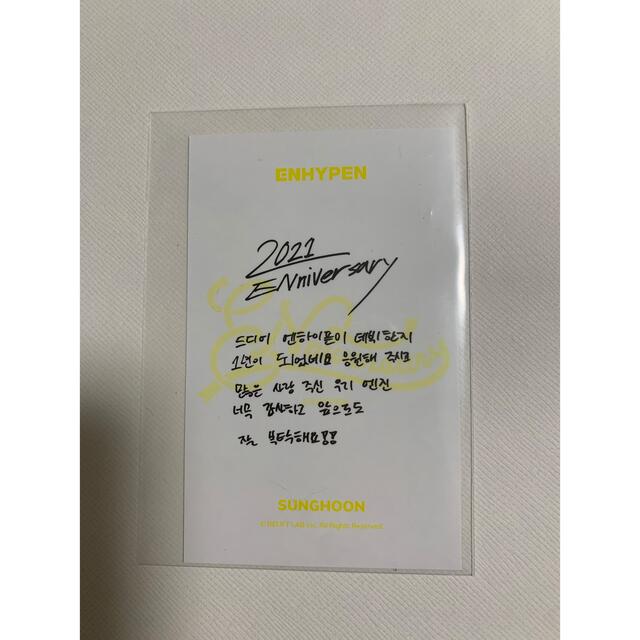 ENHYPEN
2021
ENniversary
드디어 엔하이픈이 데뷔한지
1년이 되었네요 응원해 주시고
많은 사랑 주신 우리 엔진
너무 감사하고 앞으로도
잘 부탁해요!!
SUNGHOON
© BELIFT LAB Inc. All Rights Reserved.